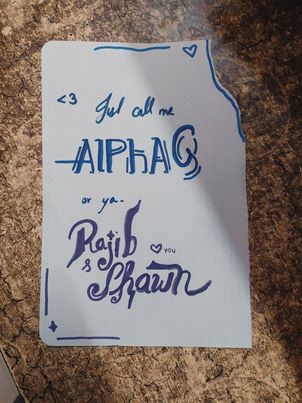 <3 Just call me
AlphaQ
or ya-
Rajib
& Shawn
you